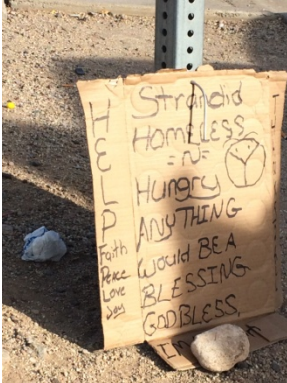 H
E
L
P
Faith
Peace
Love
Joy
Strandid
HOMELESS
=N=
Hungry
ANYTHING
Would BE A
BLESSING
GOD BLESS,